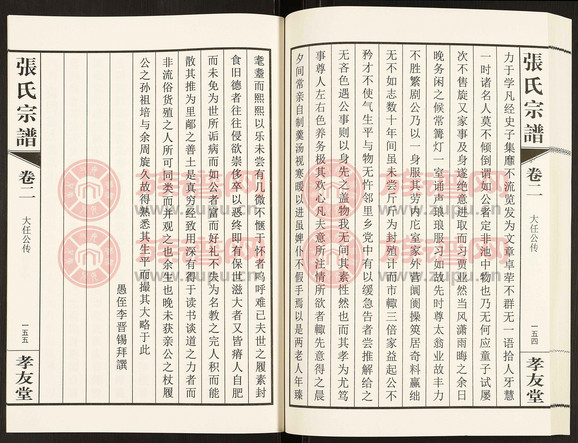 張氏宗譜
卷二
大任公传
一五四
孝友堂
力于学凡经史子集靡不流览发为文章卓荦不群无一语拾人牙慧
一时诸名人莫不倾倒谓如公者定非池中物也乃无何应童子试屡
次不售旋又家事及身遂绝意进取而习贾业然当风潇雨晦之余日
晚务闲之候常篝灯一室诵声琅琅服习如故先时尊太翁业故丰力
不胜繁剧公乃以一身服其劳内庀室家外营阛阓操筴居奇料赢绌
无不如志数十年间虽未尝斤斤为封殖计而市輙三倍家益起公不
矜才不使气生平与物无忤邻里乡党中有以缓急告者尝推解给之
无吝色遇公事则以身先之盖物我无间其素性然也而其孝为尤笃
事尊人左右色养务极其欢心凡夫意所注情所欲者輙先意得之晨
夕间常亲自制羹汤视寒暖以进虽婢仆不假手焉以是两老人年臻
耄耋而熙熙以乐未尝有几微不惬于怀者呜呼难已夫世之履素封
食旧德者往往侵欲崇侈卒以恶终即有保世滋大者又皆瘠人自肥
而未免为世所诟病而如公者富而好礼不失为名教之完人积而能
散其推为里鄙之善士是真穷经致用深有得于读书谈道之力者而
非流俗货殖之人所可同类而并观之也余生也晚未获亲公之杖履
公之孙祖培与余周旋久故得熟悉其生平而撮其大略于此
愚侄李晋锡拜譔
張氏宗譜
卷二
大任公传
一五五
孝友堂